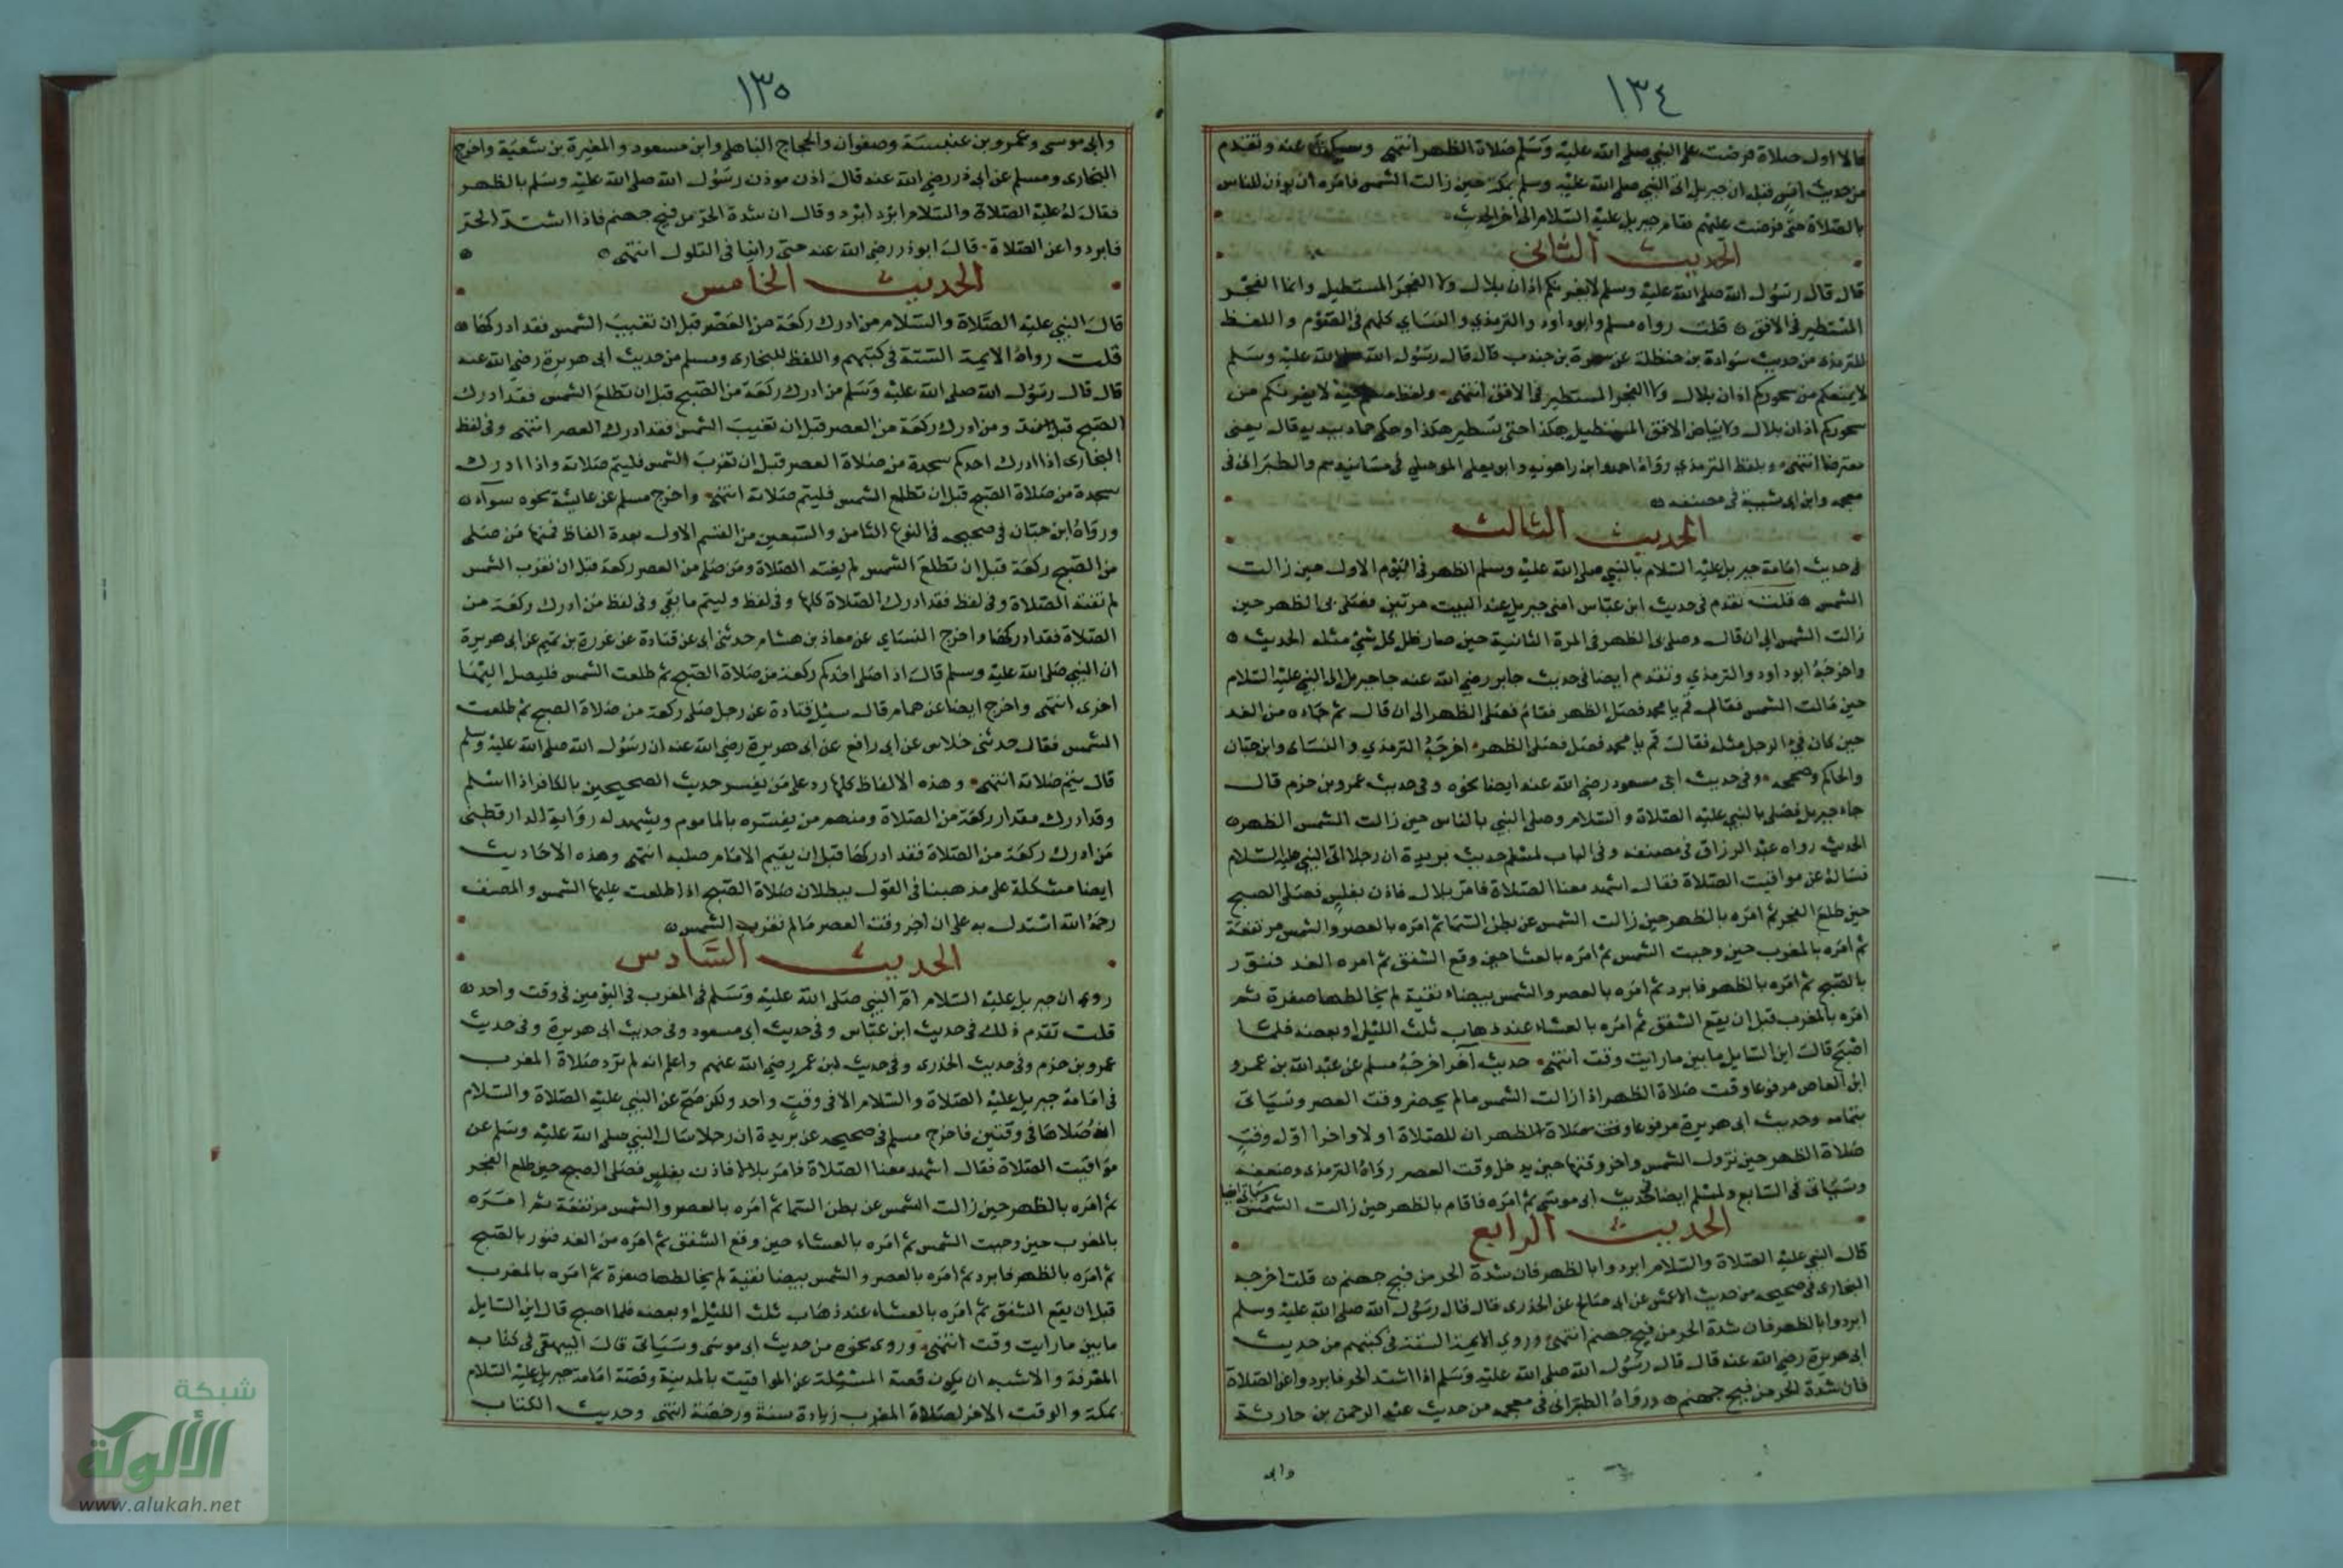 ١٣٤
قالا اول صلاة فرضت على النبي صلى الله عليه وسلم صلاة الظهر انتهى وسيأتي عنه وتقدم
من حديث انس قبل ان جبريل اتى النبي صلى الله عليه وسلم بمكة حين زالت الشمس فامره ان يوذن للناس
بالصلاة حتى فرضت عليهم فقام جبريل عليه السلام الى اخر الحديث
الحديث الثاني
قال قال رسول الله صلى الله عليه وسلم لا يغرنكم اذان بلال ولا الفجر المستطيل وانما الفجر
المستطير في الافق قلت رواه مسلم وابوداود والترمذي والنساي كلهم في الصوم واللفظ
للترمذي من حديث سوادة بن حنظلة عن سمرة بن جندب قال قال رسول الله صلى الله عليه وسلم
لا يمنعكم من سحوركم اذان بلال ولا الفجر المستطير في الافق انتهى ولفظ مسلم فيه لا يغرنكم من
سحوركم اذان بلال ولا بياض الافق المستطيل هكذا حتى يستطير هكذا وحكى حماد بيديه قال يعني
معترضا انتهى وبلفظ الترمذي رواه احمد وابن راهويه وابو يعلى الموصلي في مسانيدهم والطبراني في
معجمه وابن ابي شيبة في مصنفه
الحديث الثالث
في حديث امامة جبريل عليه السلام بالنبي صلى الله عليه وسلم الظهر في اليوم الاول حين زالت
الشمس قلت تقدم في حديث ابن عباس امني جبريل عند البيت مرتين فصلى بي الظهر حين
زالت الشمس الى ان قال وصلى بي الظهر في المرة الثانية حين صار ظل كل شئ مثله الحديث
واخرجه ابوداود والترمذي وتقدم ايضا في حديث جابر رضي الله عنه جا جبريل الى النبي عليه السلام
حين مالت الشمس فقال قم يا محمد فصل الظهر فقام فصلى الظهر الى ان قال ثم جاءه من الغد
حين كان فئ الرجل مثله فقال قم يا محمد فصل فصلى الظهر اخرجه الترمذي والنساى وابن حبان
والحاكم وصححه وفي حديث ابي مسعود رضي الله عنه ايضا نحوه وفي حديث عمرو بن حزم قال
جاء جبريل فصلى بالنبي عليه الصلاة والسلام وصلى النبي بالناس حين زالت الشمس الظهر
الحديث رواه عبد الرزاق في مصنفه وفي الباب لمسلم حديث بريدة ان رجلا اتى النبي عليه السلام
فساله عن مواقيت الصلاة فقال اشهد معنا الصلاة فامر بلال فاذن بغلس فصلى الصبح
حين طلع الفجر ثم امره بالظهر حين زالت الشمس عن بطن السما ثم امره بالعصر والشمس مرتفعة
ثم امره بالمغرب حين وجبت الشمس ثم امره بالعشا حين وقع الشفق ثم امره الغد فنور
بالصبح ثم امره بالظهر فابرد ثم امره بالعصر والشمس بيضاء نقية لم يخالطها صفرة ثم
امره بالمغرب قبل ان يقع الشفق ثم امره بالعشاء عند ذهاب ثلث الليل او بعضه فلما
اصبح قال اين السايل ما بين ما رايت وقت انتهى حديث آخر اخرجه مسلم عن عبد الله بن عمرو
ابن العاص مرفوعا وقت صلاة الظهر اذا زالت الشمس ما لم يحضر وقت العصر وسياتي
بتمامه وحديث ابي هريرة مرفوعا وقت صلاة الظهر ان للصلاة اولا واخرا اول وقت
صلاة الظهر حين تزول الشمس واخر وقتها حين يدخل وقت العصر رواه الترمذي وضعفه
وسياتي في السابع ولمسلم ايضا في حديث ابي موسى ثم امره فاقام بالظهر حين زالت الشمس وسياتي ايضا
الحديث الرابع
قال النبي عليه الصلاة والسلام ابردوا بالظهر فان شدة الحر من فيح جهنم قلت اخرجه
البخاري في صحيحه من حديث الاعمش عن ابي صالح عن الخدري قال قال رسول الله صلى الله عليه وسلم
ابردوا بالظهر فان شدة الحر من فيح جهنم انتهى وروى الايمة الستة في كتبهم من حديث
ابي هريرة رضي الله عنه قال قال رسول الله صلى الله عليه وسلم اذا اشتد الحر فابردوا عن الصلاة
فان شدة الحر من فيح جهنم ورواه الطبراني في معجمه من حديث عبد الرحمن بن حارثة
وابي
١٣٥
وابي موسى وعمرو بن عنبسة وصفوان والحجاج الباهلي وابن مسعود والمغيرة بن شعبة واخرج
البخارى ومسلم عن ابي ذر رضي الله عنه قال اذن موذن رسول الله صلى الله عليه وسلم بالظهر
فقال له عليه الصلاة والسلام ابرد ابرد وقال ان شدة الحر من فيح جهنم فاذا اشتد الحر
فابردوا عن الصلاة قال ابوذر رضي الله عنه حتى راينا في التلول انتهى
الحديث الخامس
قال النبي عليه الصلاة والسلام من ادرك ركعة من العصر قبل ان تغيب الشمس فقد ادركها
قلت رواه الايمة الستة في كتبهم واللفظ للبخارى ومسلم من حديث ابي هريرة رضي الله عنه
قال قال رسول الله صلى الله عليه وسلم من ادرك ركعة من الصبح قبل ان تطلع الشمس فقد ادرك
الصبح ومن ادرك ركعة من العصر قبل ان تغيب الشمس فقد ادرك العصر انتهى وفي لفظ
البخارى اذا ادرك احدكم سجدة من صلاة العصر قبل ان تغرب الشمس فليتم صلاته واذا ادرك
سجدة من صلاة الصبح قبل ان تطلع الشمس فليتم صلاته انتهى واخرج مسلم عن عائشة نحوه سواء
ورواه ابن حبان في صحيحه في النوع الثامن والسبعين من القسم الاول بعدة الفاظ فمنها من صلى
من الصبح ركعة قبل ان تطلع الشمس لم يفته الصلاة ومن صلى من العصر ركعة قبل ان تغرب الشمس
لم تفته الصلاة وفي لفظ فقد ادرك الصلاة كلها وفي لفظ وليتم ما بقي وفي لفظ من ادرك ركعة من
الصلاة فقد ادركها واخرج النساي عن معاذ بن هشام حدثني ابي عن قتادة عن عزرة بن تميم عن ابي هريرة
ان النبي صلى الله عليه وسلم قال اذا صلى احدكم ركعة من صلاة الصبح ثم طلعت الشمس فليصل اليها
اخرى انتهى واخرج ايضا عن همام قال سئل قتادة عن رجل صلى ركعة من صلاة الصبح ثم طلعت
الشمس فقال حدثني خلاس عن ابي رافع عن ابي هريرة رضي الله عنه ان رسول الله صلى الله عليه وسلم
قال يتم صلاته انتهى وهذه الالفاظ كلها رد على من يفسر حديث الصحيحين بالكافر اذا اسلم
وقد ادرك مقدار ركعة من الصلاة ومنهم من يفسره بالماموم ويشهد له رواية الدارقطني
من ادرك ركعة من الصلاة فقد ادركها قبل ان يقيم الامام صلبه انتهى وهذه الاحاديث
ايضا مشكلة على مذهبنا في القول ببطلان صلاة الصبح اذا طلعت عليها الشمس والمصنف
رحمه الله استدل به على ان اخر وقت العصر مالم تغرب الشمس
الحديث السادس
روى ان جبريل عليه السلام ام النبي صلى الله عليه وسلم في المغرب في اليومين في وقت واحد
قلت تقدم ذلك في حديث ابن عباس وفي حديث ابي مسعود وفي حديث ابي هريرة وفي حديث
عمرو بن حزم وفي حديث الخدرى وفي حديث ابن عمر رضي الله عنهم واعلم انه لم ترد صلاة المغرب
في امامة جبريل عليه الصلاة والسلام الا في وقت واحد ولكن صح عن النبي عليه الصلاة والسلام
انه صلاها في وقتين فاخرج مسلم في صحيحه عن بريدة ان رجلا سال النبي صلى الله عليه وسلم عن
مواقيت الصلاة فقال اشهد معنا الصلاة فامر بلالا فاذن بغلس فصلى الصبح حين طلع الفجر
ثم امره بالظهر حين زالت الشمس عن بطن السما ثم امره بالعصر والشمس مرتفعة ثم امره
بالمغرب حين وجبت الشمس ثم امره بالعشاء حين وقع الشفق ثم امره من الغد فنور بالصبح
ثم امره بالظهر فابرد ثم امره بالعصر والشمس بيضا نقية لم يخالطها صفرة ثم امره بالمغرب
قبل ان يقع الشفق ثم امره بالعشاء عند ذهاب ثلث الليل او بعضه فلما اصبح قال اين السايل
ما بين ما رايت وقت انتهى وروى نحوه من حديث ابي موسى وسياتي قال البيهقي في كتاب
المعرفة والاشبه ان يكون قصة المسئلة عن المواقيت بالمدينة وقصة امامة جبريل عليه السلام
بمكة والوقت الاخر لصلاة المغرب زيادة سنة ورخصة انتهى وحديث الكتاب
شبكة
الألوكة
www.alukah.net